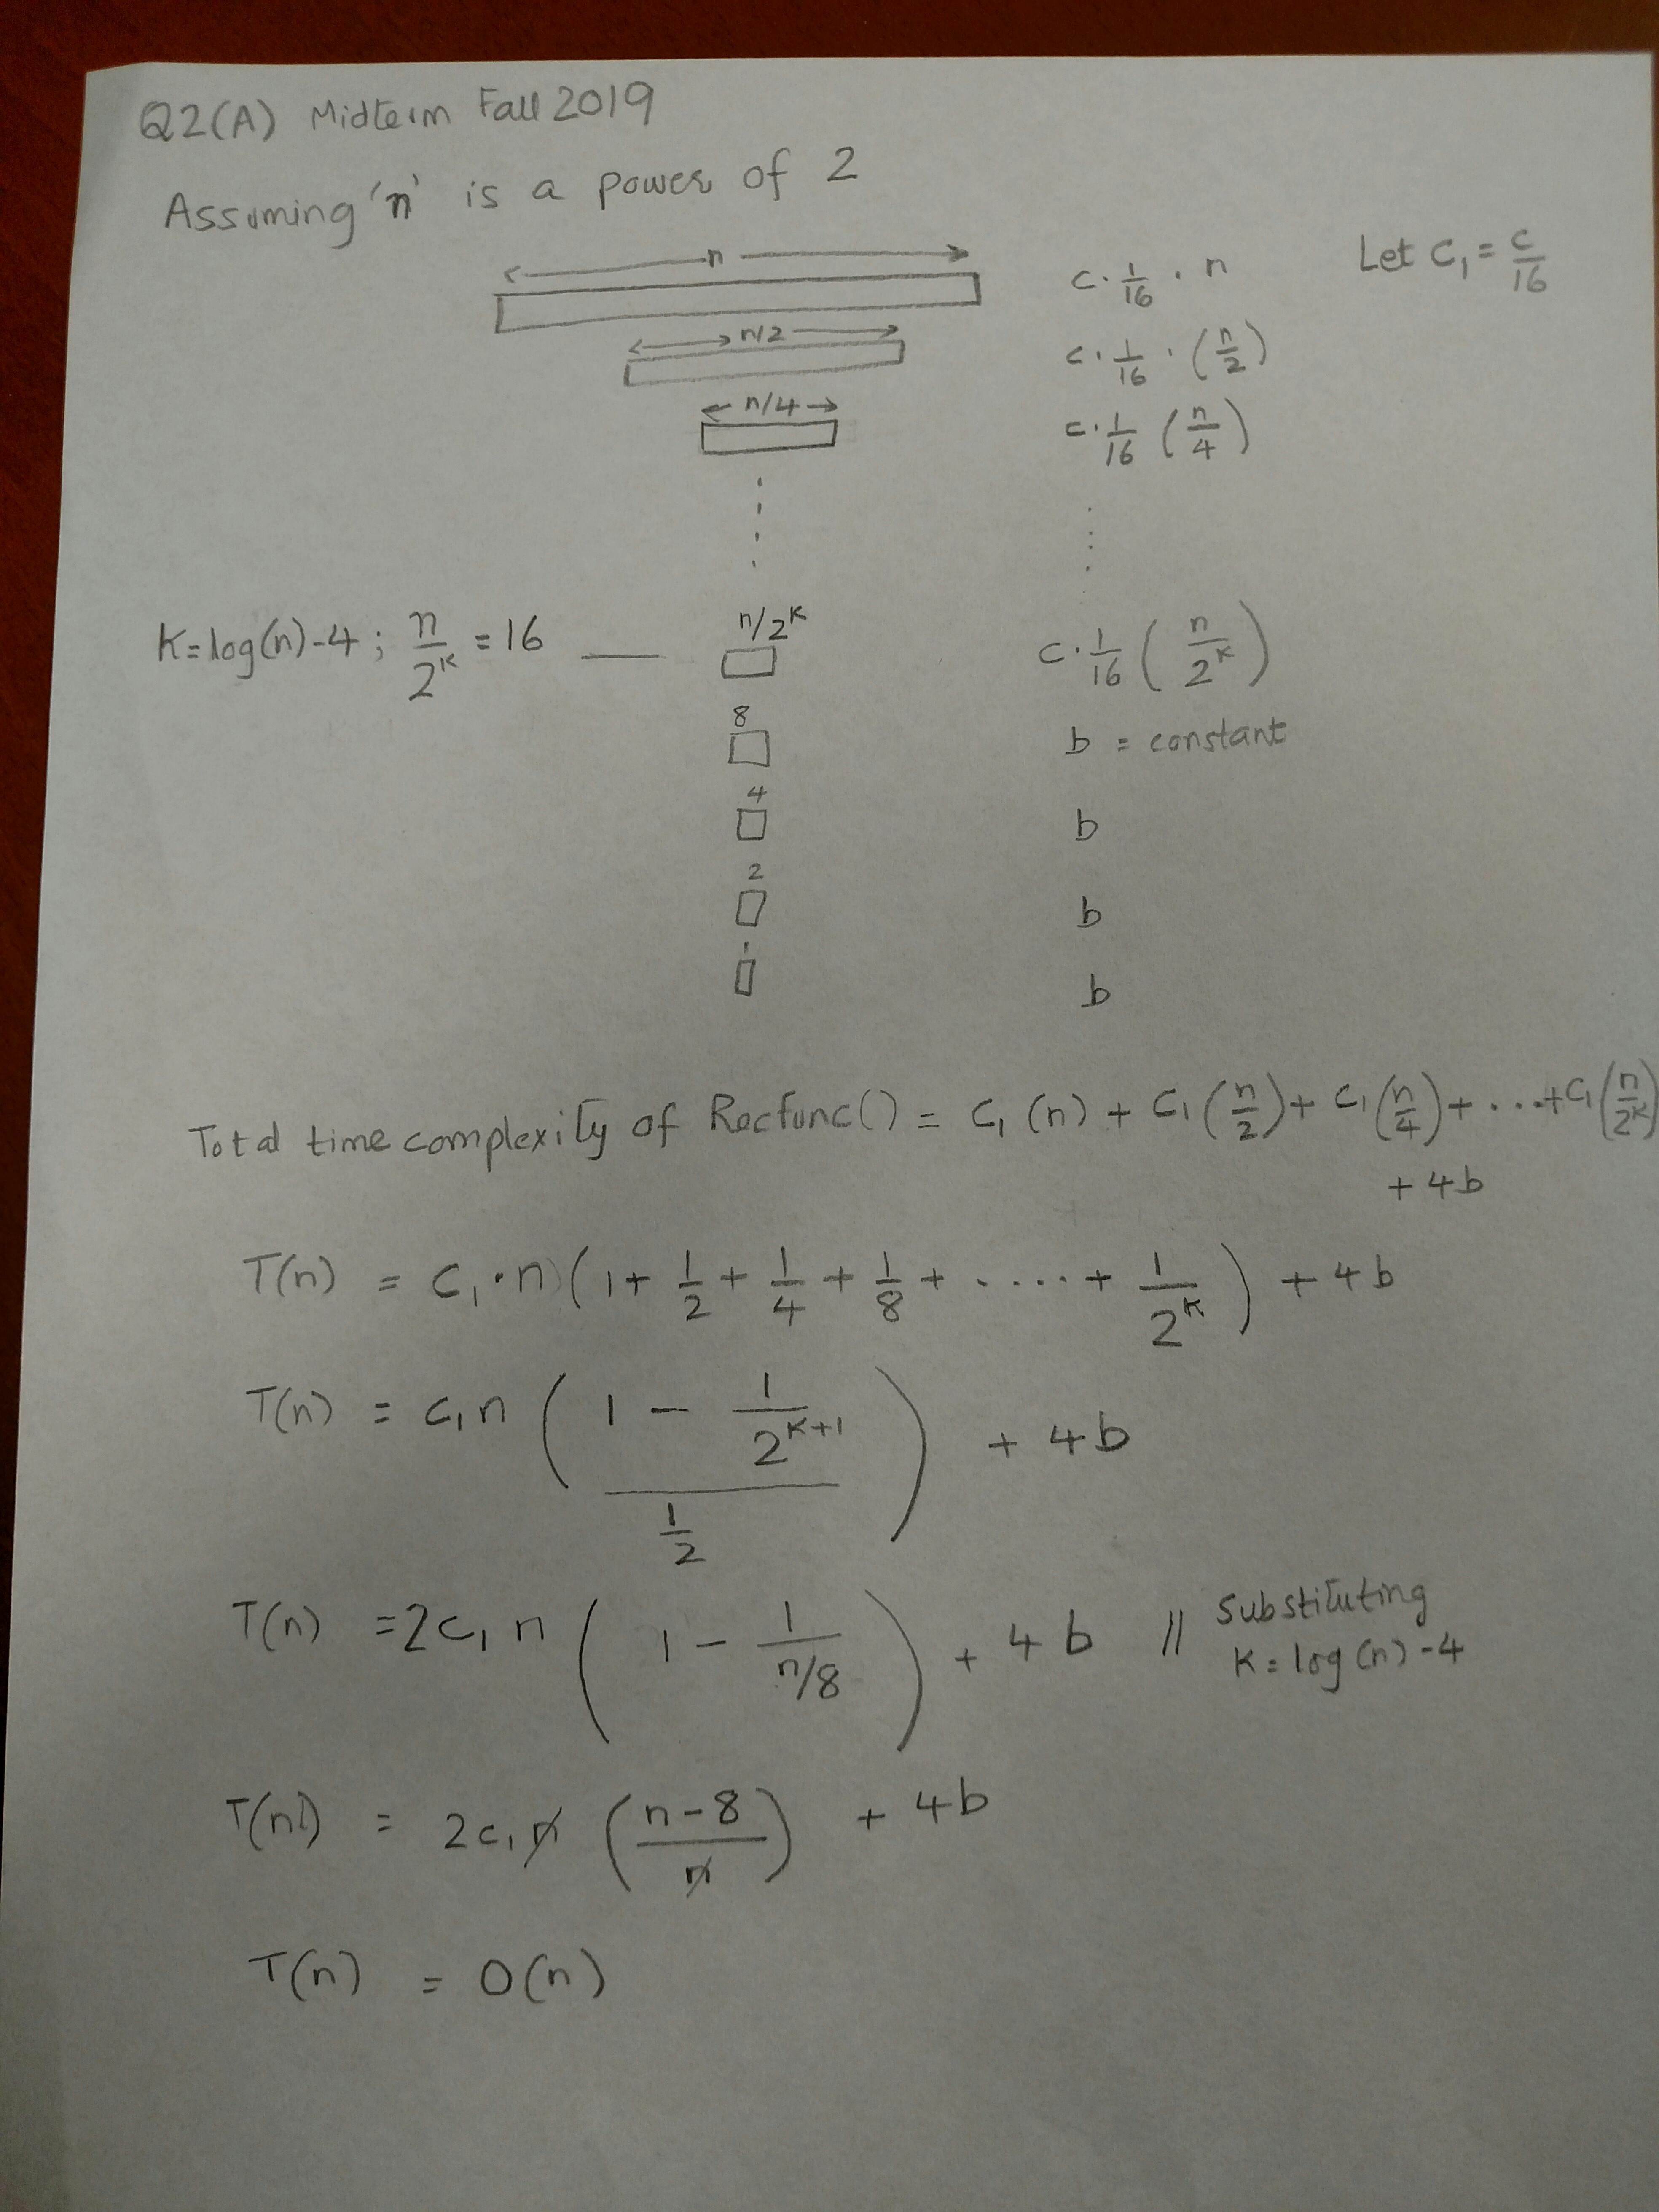 Q2(A) Midterm Fall 2019
Assuming 'n' is a power of 2
n
c · 1/16 · n
Let C₁ = c/16
n/2
c · 1/16 · (n/2)
n/4
c · 1/16 (n/4)
K = log(n) - 4 ; n/2^K = 16 —
n/2^K
c · 1/16 (n/2^K)
8
b = constant
4
b
2
b
1
b
Total time complexity of Recfunc() = C₁ (n) + C₁ (n/2) + C₁ (n/4) + ... + C₁ (n/2^K)
+ 4b
T(n) = C₁ · n (1 + 1/2 + 1/4 + 1/8 + ..... + 1/2^K) + 4b
T(n) = C₁ n ((1 - 1/2^(K+1)) / (1/2)) + 4b
T(n) = 2C₁ n (1 - 1/(n/8)) + 4b // Substituting
K = log(n) - 4
T(n) = 2C₁ n ((n-8)/n) + 4b
T(n) = O(n)